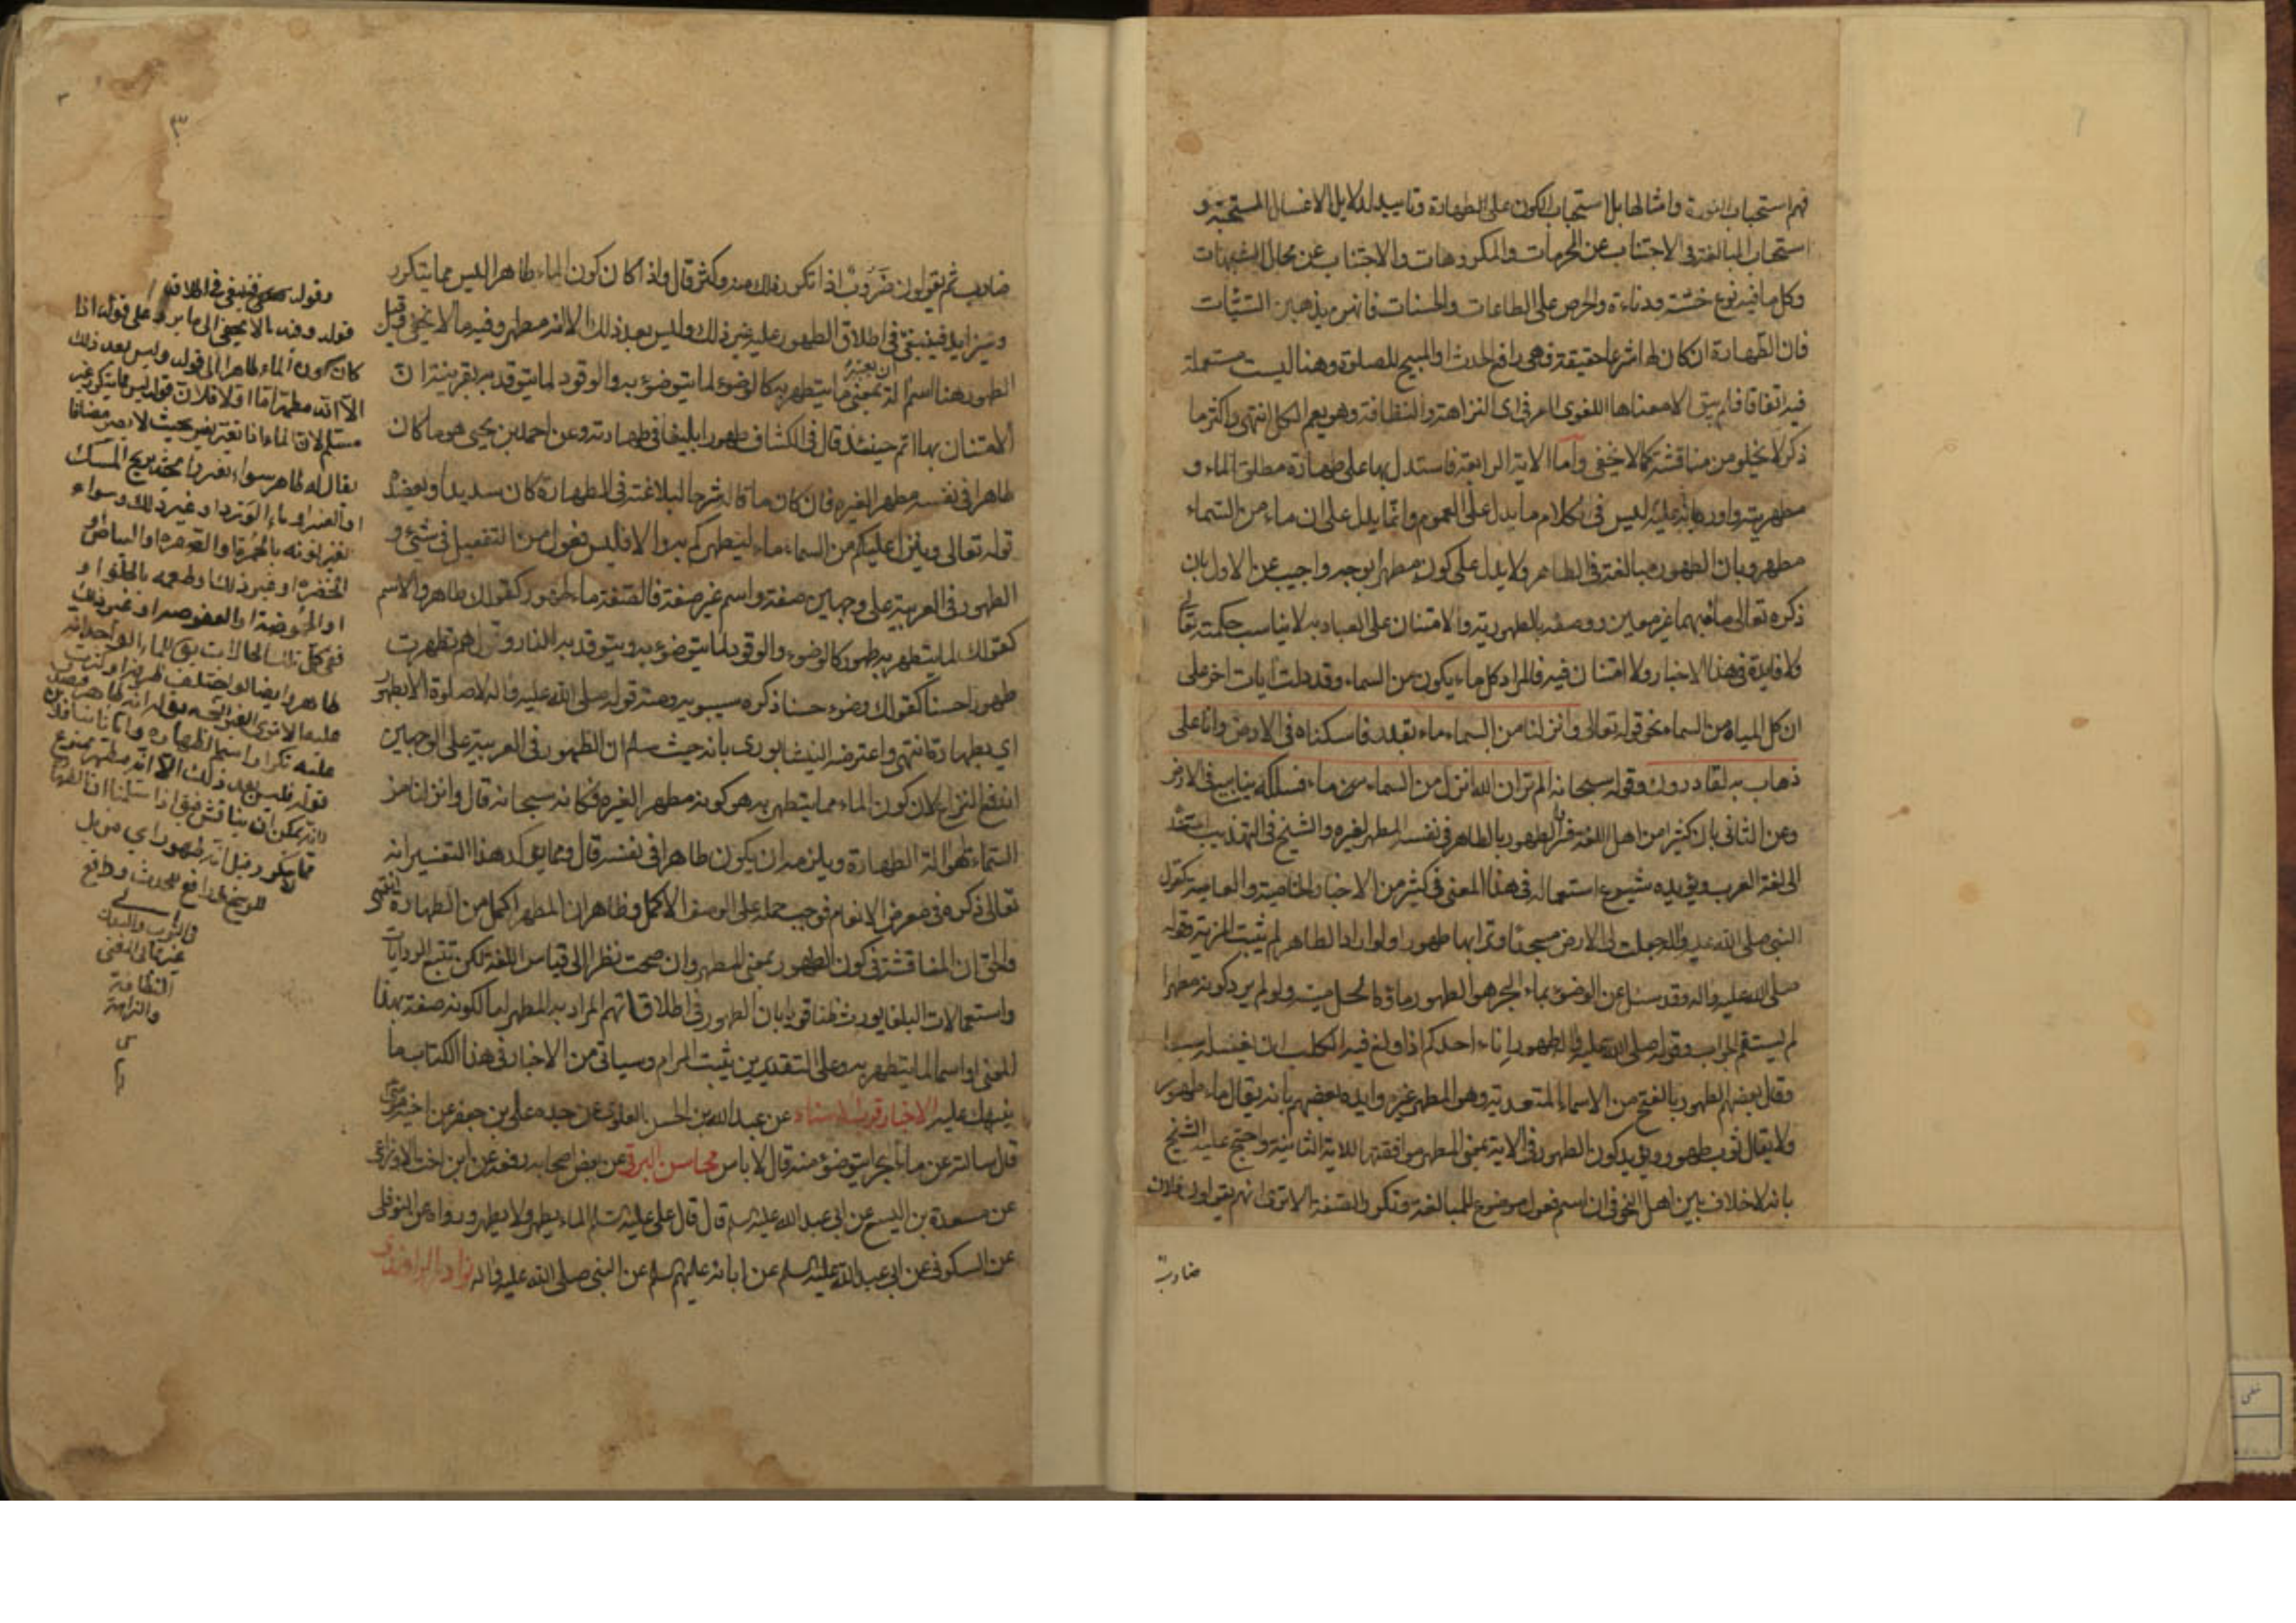 فهم استحباب النورة وامثالها بل استحباب الكون على الطهارة وتاييد لدلايل الاغسال المستحبة و
استحباب المبالغة في الاجتناب عن المحرمات والمكروهات والاجتناب عن محال الشبهات
وكل ما فيه نوع خسّة ودناءة والحرص على الطاعات والحسنات فانهن يذهبن السّيّئات
فان الطّهارة ان كان لها شرعا حقيقة فهي رافع الحدث او المبيح للصلوة وهنا ليست مستعملة
فيه اتفاقا فلم يبق الا معناها اللغوى العرفى اى النزاهة والنظافة وهو يعم الكل انتهى واكثر ما
ذكر لا يخلو من مناقشة كما لا يخفى وامّا الاية الرابعة فاستدل بها على طهارة مطلق الماء و
مطهريته واورد عليه بانه ليس فى الكلام ما يدل على العموم وانّما يدل على ان ماء من السّماء
مطهر وبان الطهور مبالغة فى الطاهر ولا يدل على كونه مطهرا بوجه واجيب عن الاول بان
ذكره تعالى ماء مبهما غير معين ووصفه بالطهورية والامتنان على العباد به لا يناسب حكمته تعالى
ولا فايدة فى هذا الاخبار ولا امتنان فيه فالمراد كل ماء يكون من السماء وقد دلت ايات اخر على
ان كل المياه من السماء نحو قوله تعالى وانزلنا من السماء ماء بقدر فاسكناه فى الارض وانا على
ذهاب به لقادرون وقوله سبحانه الم تر ان الله انزل من السماء ماء فسلكه ينابيع فى الارض
وعن الثانى بان كثيرا من اهل اللغة فسر الطهور بالطاهر فى نفسه المطهر لغيره والشيخ فى التهذيب
الى لغة العرب ويؤيده شيوع استعماله فى هذا المعنى فى كثير من الاخبار الخاصية والعامية كقول
النبى صلى الله عليه وآله جعلت لى الارض مسجدا وترابها طهورا ولو اراد الطاهر لم يثبت المزية وقوله
صلى الله عليه واله وقد سئل عن الوضوء بماء البحر هو الطهور ماؤه الحل ميتته ولو لم يرد كونه مطهرا
لم يستقم الجواب وقوله صلى الله عليه وآله طهور اناء احدكم اذا ولغ فيه الكلب ان يغسله سبعا
وقال بعضهم الطهور بالفتح من الاسماء المتعدية وهو المطهر غيره وايده بعضهم بانه يقال ماء طهور
ولا يقال ثوب طهور ويؤيد كون الطهور فى الاية بمعنى المطهر موافقتها للاية الثانية واحتج عليه الشيخ
بانه لا خلاف بين اهل النحو فى ان اسم فعول موضوع للمبالغة وتكرر الصّفة الا ترى انهم يقولون فلان
ضارب
٣
ضارب ثم يقولون ضروب اذا تكرر ذلك منه وكثر قال واذا كان كون الماء طاهرا ليس مما يتكرر
ويتزايد فينبغى فى اطلاق الطهور عليه غير ذلك وليس بعد ذلك الا انه مطهر وفيه ما لا يخفى قيل
الطهور هنا اسم الة بمعنى ما يتطهر به كالوضوء لما يتوضؤ به والوقود لما يتوقد به بقرينة ان
الامتنان بها اتم حينئذ قال فى الكشاف طهورا بليغا فى طهارته وعن احمد بن يحيى هو ما كان
طاهرا فى نفسه مطهرا لغيره فان كان ما قاله شرحا لبلاغته فى الطهارة كان سديدا ويعضده
قوله تعالى وينزل عليكم من السماء ماء ليطهركم به والا فليس فعول من التفعيل فى شئ و
الطهور فى العربية على وجهين صفة واسم غير صفة فالصّفة ماء طهور كقولك طاهر والاسم
كقولك لما يتطهر به طهور كالوضوء والوقود لما يتوضؤ به ويتوقد به النار وقولهم تطهرت
طهورا حسنا كقولك وضوء حسنا ذكره سيبويه ومنه قوله صلى الله عليه واله لا صلوة الا بطهور
اي بطهارة انتهى واعترضه النيشابورى بانه حيث سلم ان الطهور فى العربية على الوجهين
اندفع النزاع لان كون الماء مما يتطهر به هو كونه مطهرا لغيره فكانه سبحانه قال وانزلنا من
السّماء ماء هو الة الطهارة ويلزمه ان يكون طاهرا فى نفسه قال ومما يؤكد هذا التفسير انه
تعالى ذكره فى معرض الانعام فوجب حمله على الوصف الاكمل وظاهر ان المطهر اكمل من الطهارة انتهى
والحق ان المناقشة فى كون الطهور بمعنى المطهر وان صحت نظرا الى قياس اللغة لكن تتبع الروايات
واستعمالات البلغا يورث ظنا قويا بان الطهور فى اطلاقاتهم المراد به المطهر اما لكونه صفة بهذا
المعنى او اسما لما يتطهر به وعلى التقديرين يثبت المرام وسياتى من الاخبار فى هذا الكتاب ما
ينبهك عليه الاخبار قرب الاسناد عن عبد الله بن الحسن العلوى عن جده على بن جعفر عن اخيه موسى
قال سالته عن ماء البحر ايتوضؤ منه قال لا باس محاسن البرقى عن بعض اصحابه رفعه عن ابن اخت الاوزاعى
عن مسعدة بن اليسع عن ابى عبد الله عليه السلم قال قال على عليه السلم الماء يطهر ولا يطهر ورواه عن النوفلى
عن السكونى عن ابى عبد الله عليه السلم عن ابائه عليهم السلم عن النبى صلى الله عليه واله نوادر الراوندى
وقوله فينبغى فى اطلاقه
قوله وفيه ما لا يخفى الى ما يرد على قوله اذا
كان كون الماء طاهرا الى قوله وليس بعد ذلك
الا انه مطهر اما اولا فلان قوله ليس مما يتكرر غير
مسلم لان الماء اذا تغير بغيره بحيث لا يصير مضافا
يقال له طاهر سواء تغير رايحته بريح المسك
او العنبر او ماء الورد او غير ذلك وسواء
تغير لونه بالحمرة او الصفرة او البياض او
الخضرة او غير ذلك وطعمه بالحلو او
او الحموضة او العفوصة او غير ذلك
ففى كل تلك الحالات يق للماء الواحد انه
طاهر وايضا لو اختلف
قوله فليس بعد ذلك الا انه مطهر ممنوع
النظافة
والنزاهة